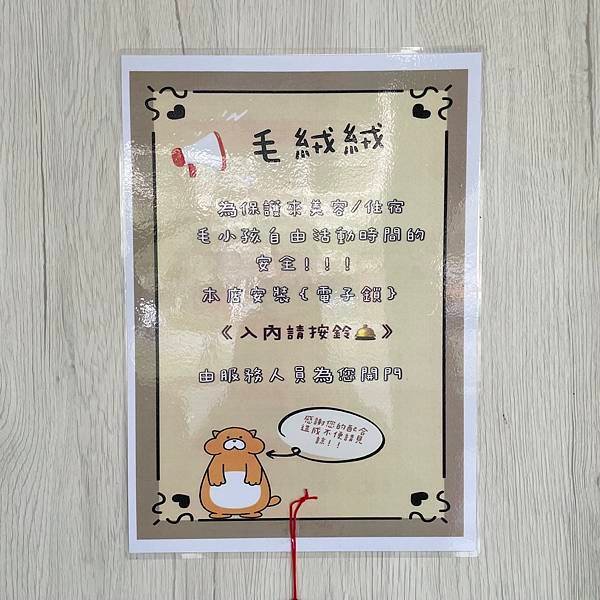 毛絨絨
為保護來美容/住宿
毛小孩自由活動時間的
安全!!!
本店安裝{電子鎖}
《入內請按鈴🛎️》
由服務人員為您開門
感謝您的配合
造成不便請見
諒!!